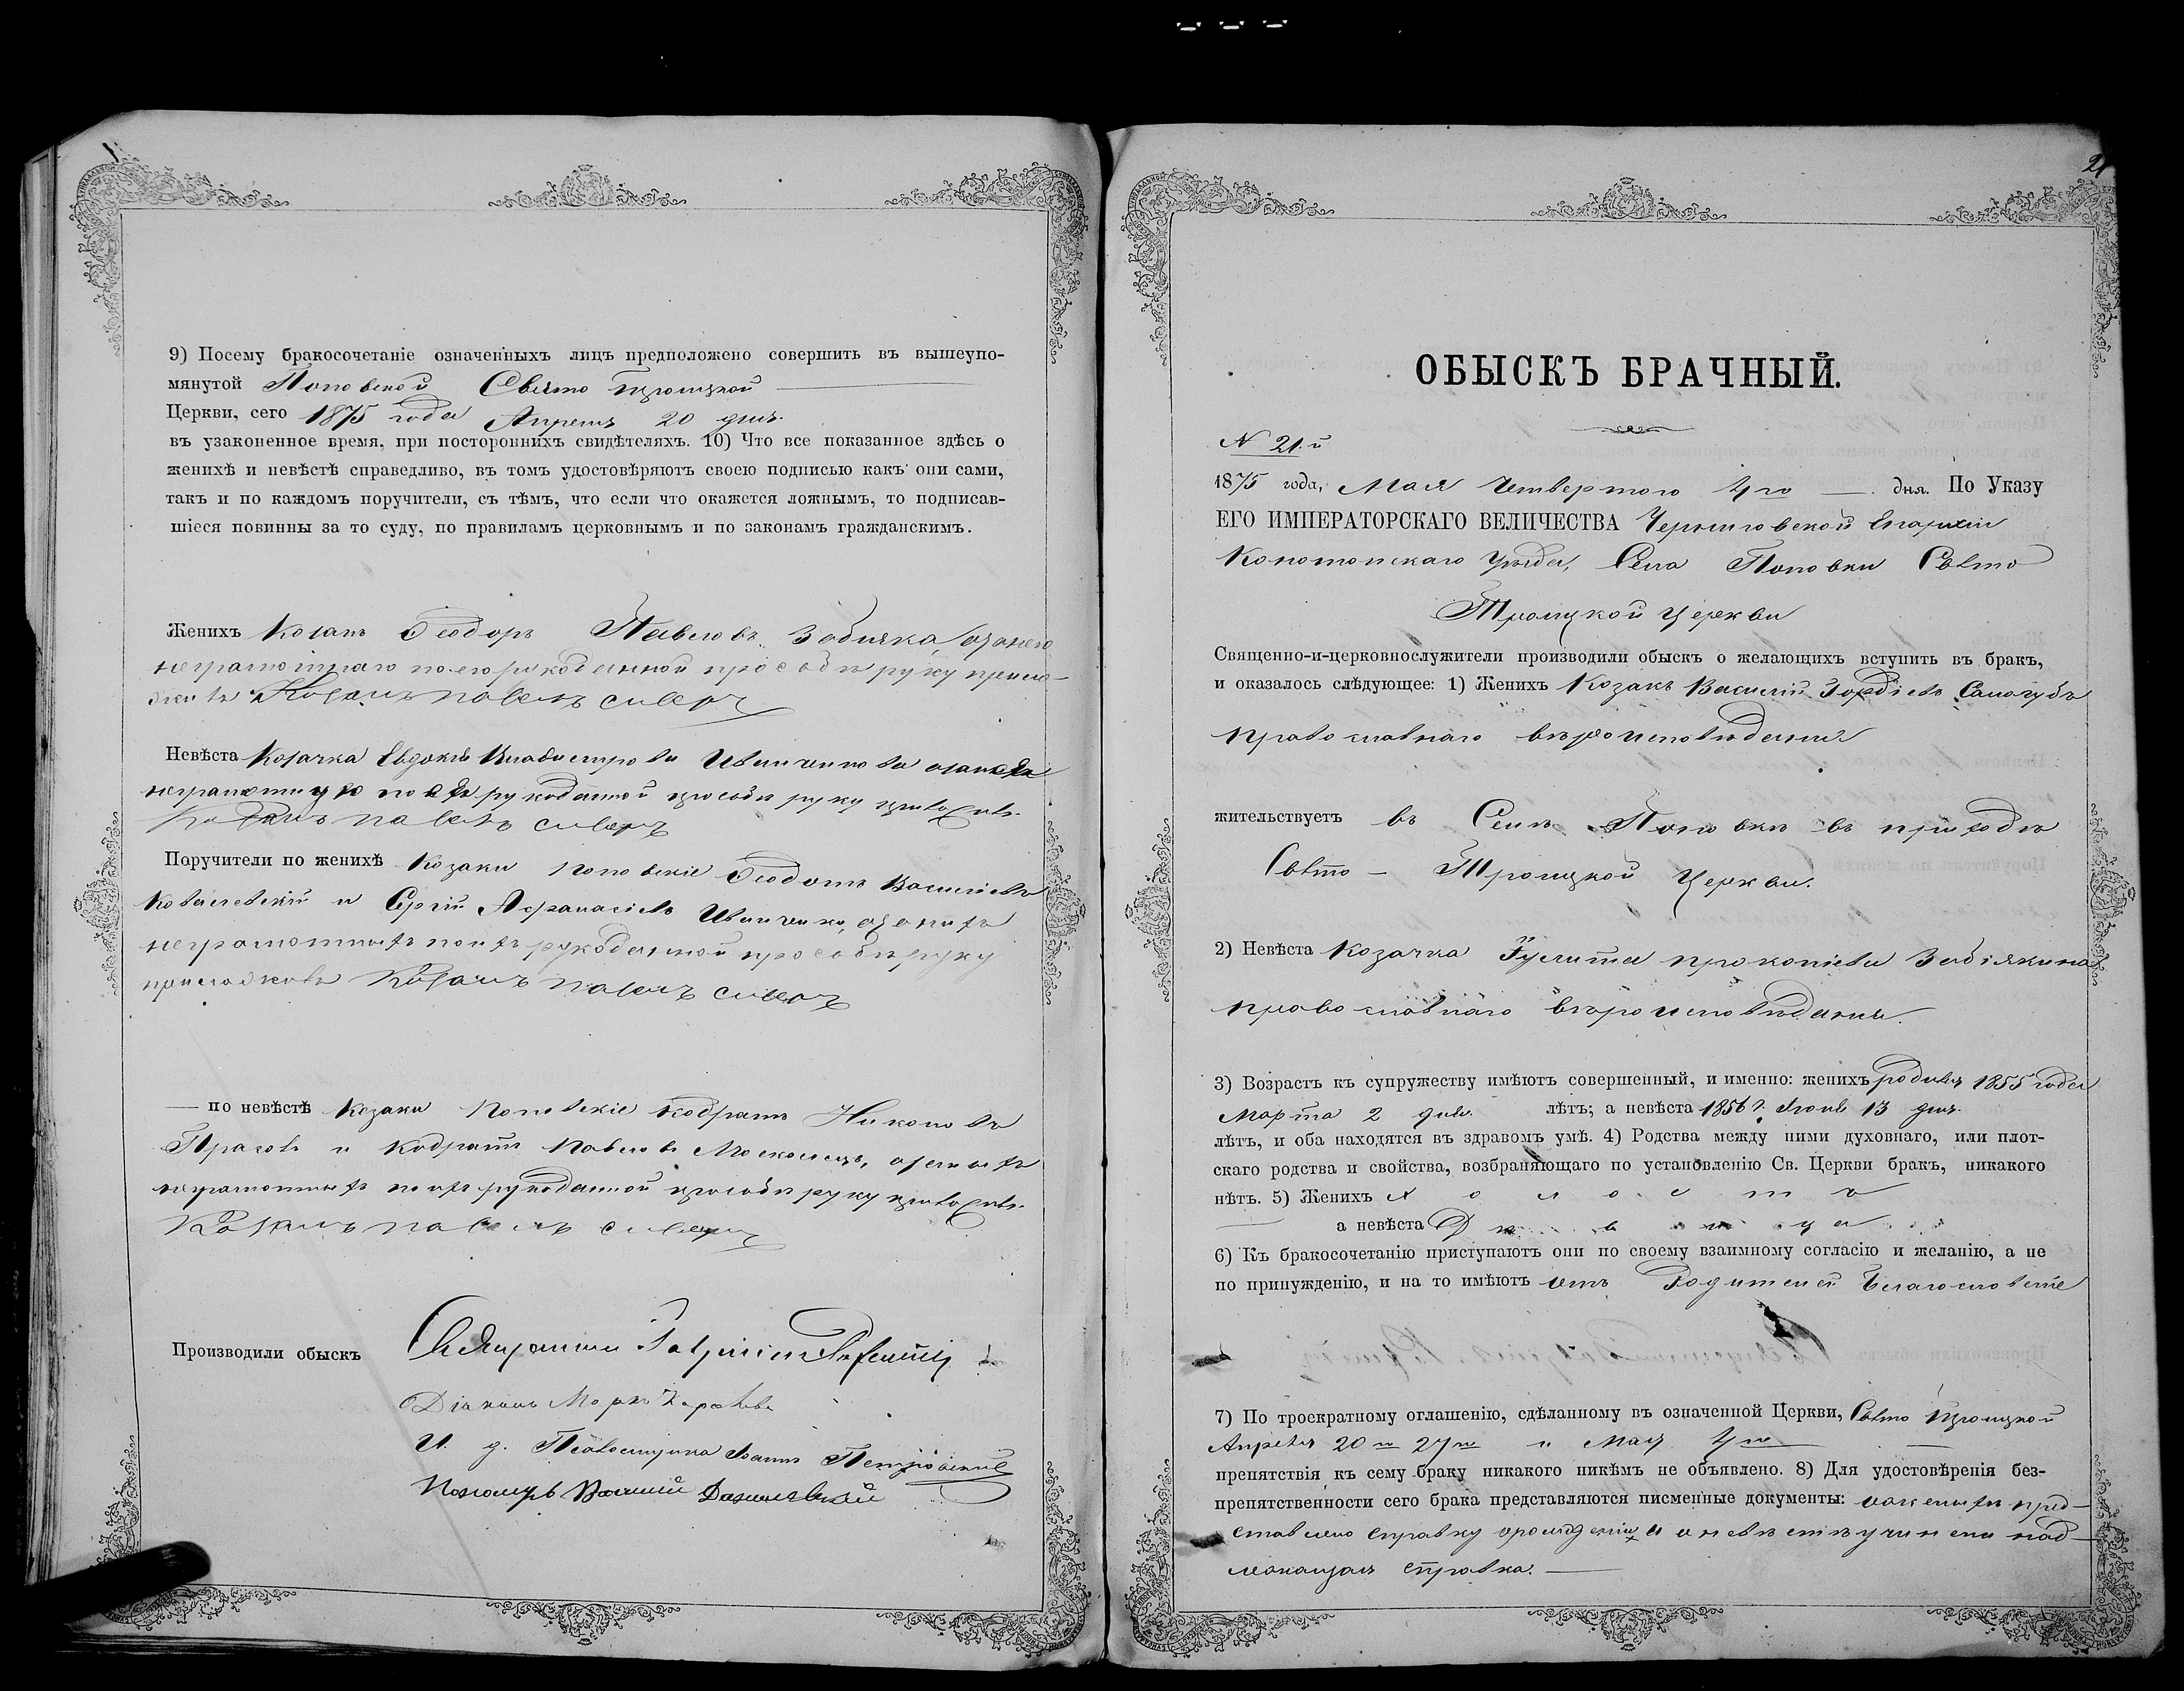 9) Посему бракосочетаніе означенныхъ лицъ предположено совершить въ вышеупо-
мянутой Поповской Свято Троицкой
Церкви, сего 1875 года Апреля 20 дня.
въ узаконенное время, при постороннихъ свидѣтеляхъ. 10) Что все показанное здѣсь о
женихѣ и невѣстѣ справедливо, въ томъ удостовѣряютъ своею подписью какъ они сами,
такъ и по каждомъ поручители, съ тѣмъ, что если что окажется ложнымъ, то подписав-
шіеся повинны за то суду, по правиламъ церковнымъ и по законамъ гражданскимъ.
Женихъ Козакъ Ѳеодоръ Павловъ Забіяка, а занего
неграмотнаго поего рукоданной прозьбѣ руку прило-
жилъ Козакъ павелъ сиверъ
Невѣста Козачка Евдокія
неграмотную по ея рукоданной прозьбѣ руку приложилъ
Козакъ павелъ сиверъ
Поручители по женихѣ Козаки поповскіе Ѳеодотъ Василіевъ
Ковалевскій и Сергій Афанасіевъ Ивашенко, а занихъ
неграмотныхъ поихъ рукоданной прозьбѣ руку
приложилъ Козакъ павелъ сиверъ
— по невѣстѣ Козаки поповскіе Кодратъ Никоновъ
и Кодратъ Павловъ Москалецъ, а занихъ
неграмотныхъ поихъ рукоданной прозьбѣ руку приложилъ
Козакъ павелъ сиверъ
Производили обыскъ Священникъ
Діаконъ Маркъ
И. д. Псаломщика Іоаннъ Петровскій
Пономарь Василий Данилевский
21
ОБЫСКЪ БРАЧНЫЙ.
N 21.й
1875 года, Мая Четвертого 4го — дня. По Указу
ЕГО ИМПЕРАТОРСКАГО ВЕЛИЧЕСТВА Черниговской Епархіи
Конотопскаго Уѣзда, Села Поповки Свято
Троицкой Церкви
Священно-и-церковнослужители производили обыскъ о желающихъ вступить въ бракъ,
и оказалось слѣдующее: 1) Женихъ Козакъ Василій Гордіевъ Самогубъ
православнаго вѣроисповѣданія
жительствуетъ въ Селѣ Поповкѣ въ приходѣ
Свято — Троицкой Церкви.
2) Невѣста Козачка Іулита прокопіева Забіякина
православнаго вѣроисповѣданія.
3) Возрастъ къ супружеству имѣютъ совершенный, и именно: женихъ родился 1855 года
Марта 2 дня. лѣтъ; а невѣста 1856 г. Іюля 13 дня.
лѣтъ, и оба находятся въ здравомъ умѣ. 4) Родства между ними духовнаго, или плот-
скаго родства и свойства, возбраняющаго по установленію Св. Церкви бракъ, никакого
нѣтъ. 5) Женихъ холостъ
— а невѣста Дѣвица
6) Къ бракосочетанію приступаютъ они по своему взаимному согласію и желанію, а не
по принужденію, и на то имѣютъ отъ Родителей благословеніе
7) По троекратному оглашенію, сдѣланному въ означенной Церкви, Свято Троицкой
Апреля 20го 27го и Мая 4го —
препятствія къ сему браку никакого никѣмъ не объявлено. 8) Для удостовѣренія без-
препятственности сего брака представляются писменные документы: о женихѣ пред-
ставлено справку орожденіи, а о невѣстѣ учинена над-
лежащая справка. —